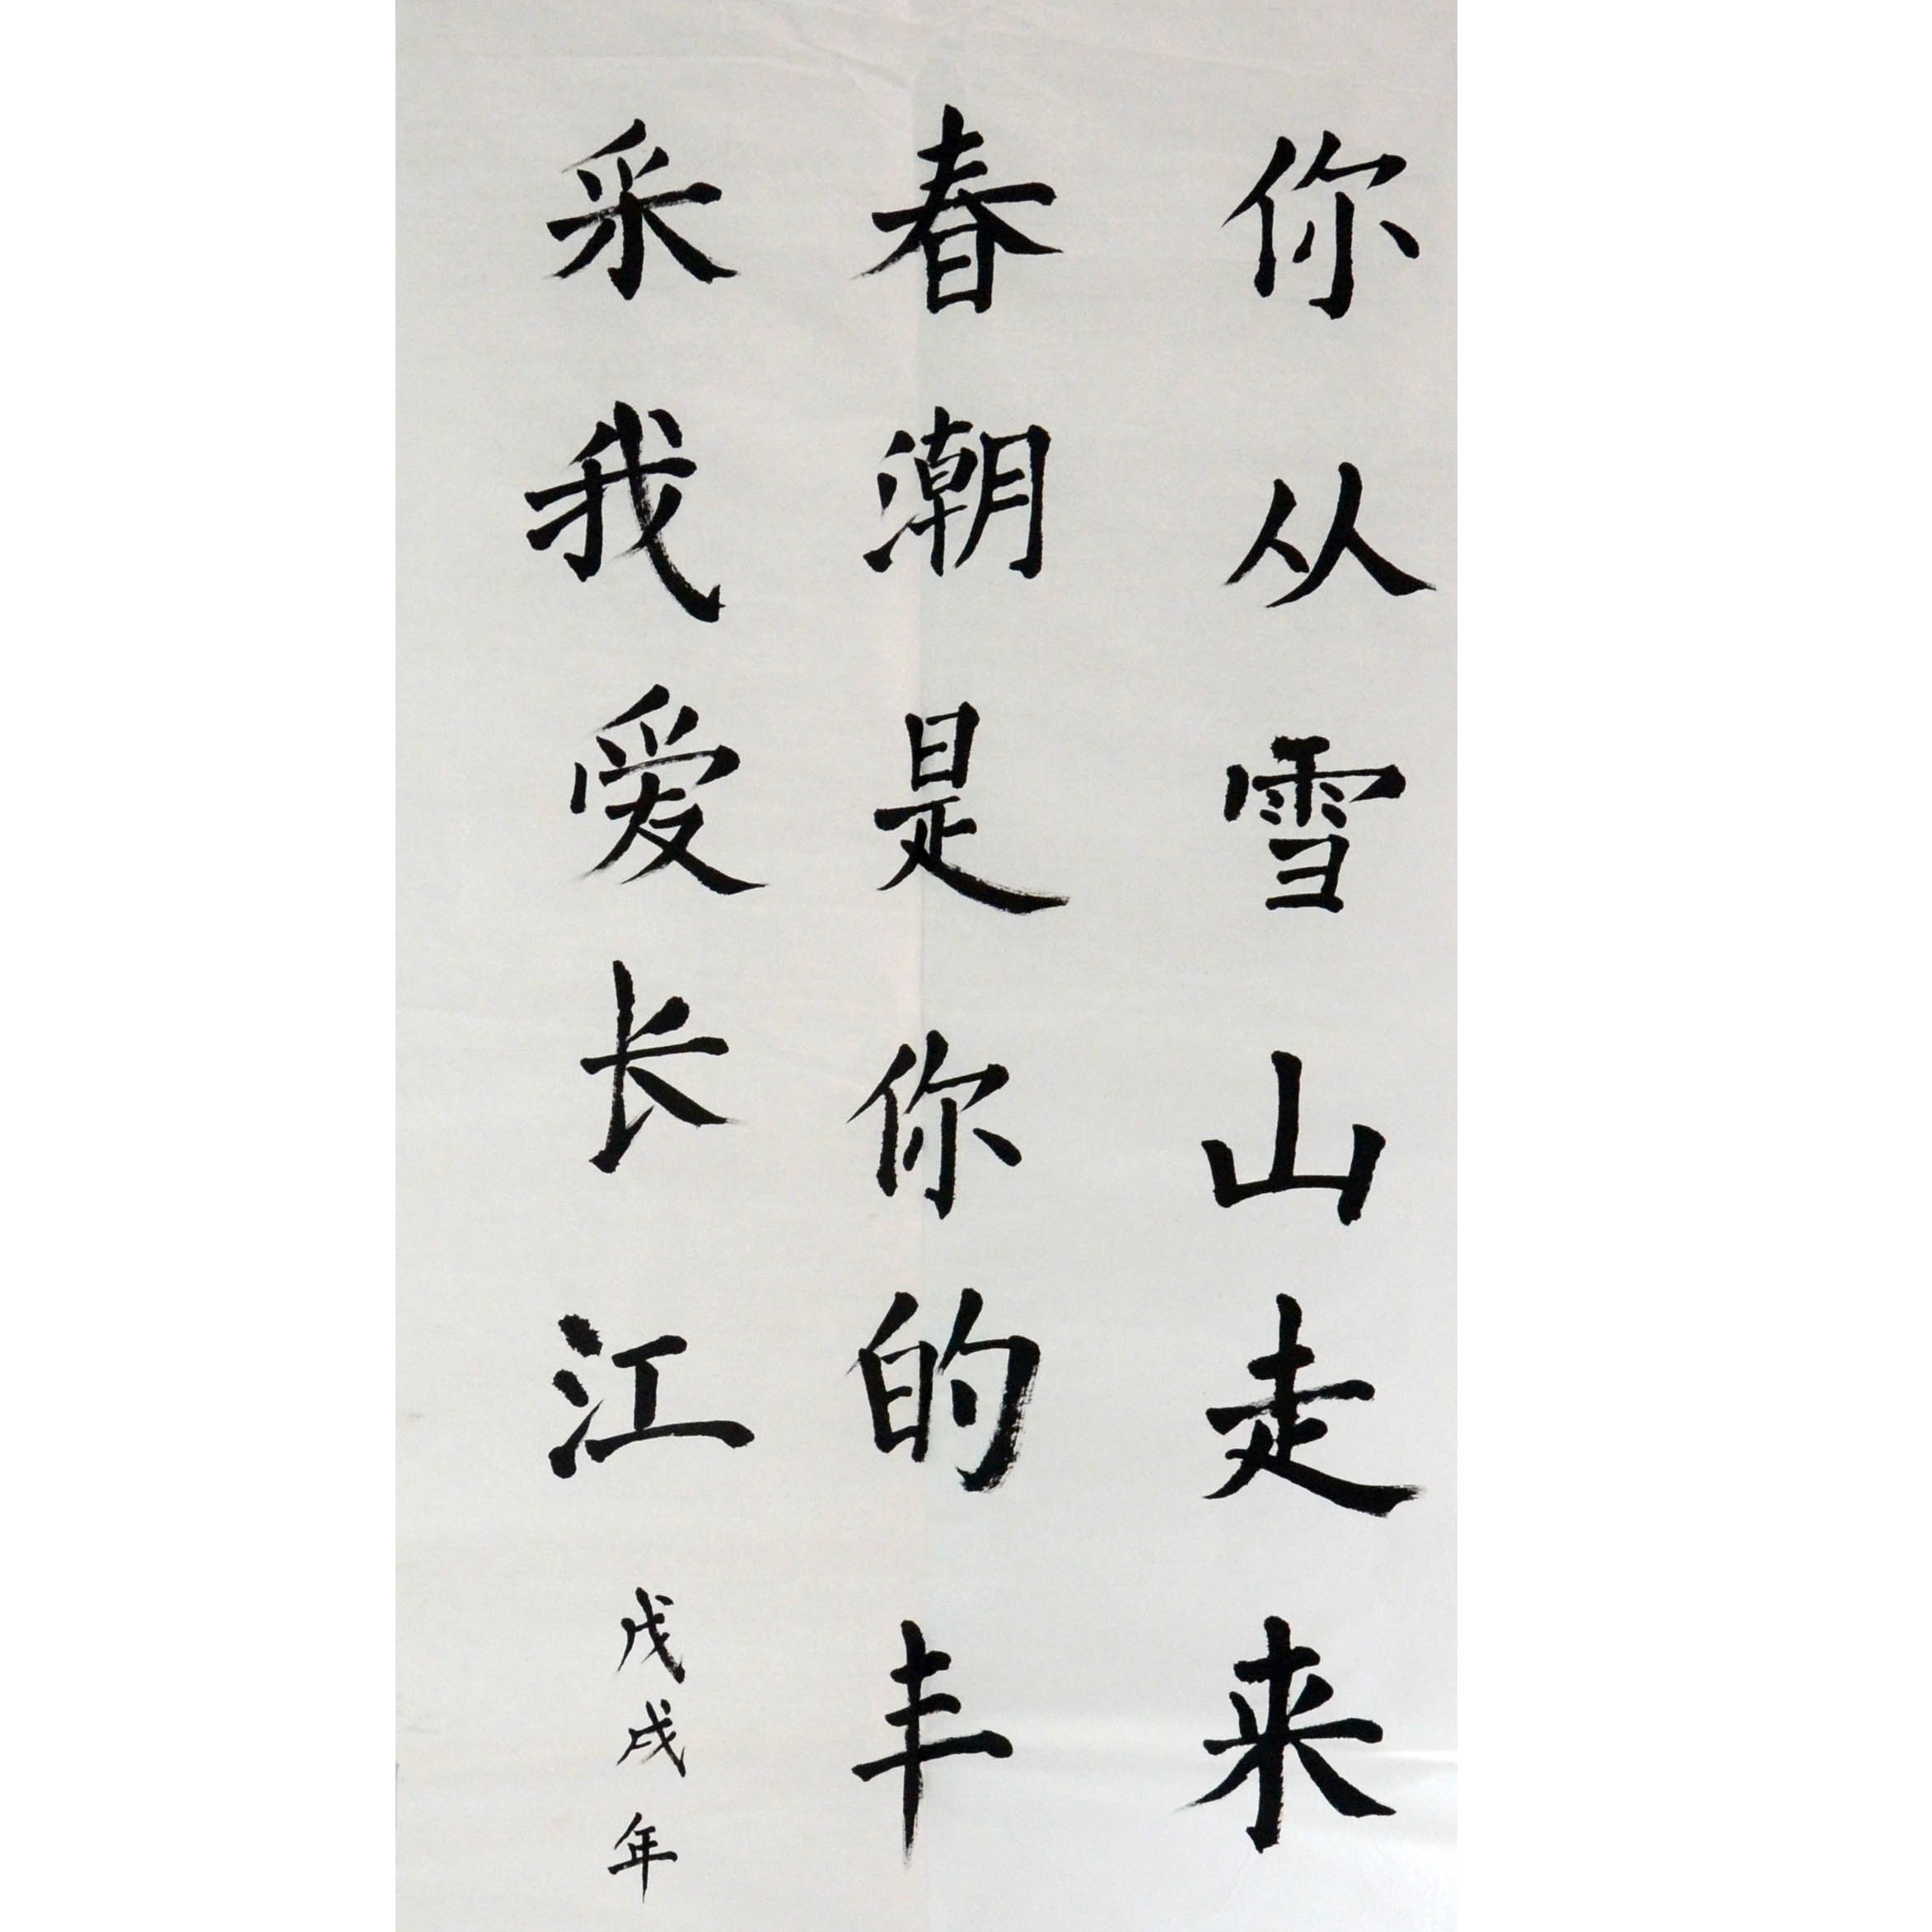 你从雪山走来
春潮是你的丰
采我爱长江
戊戌年